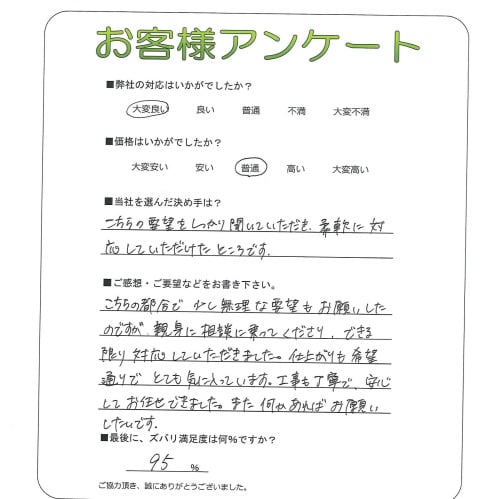 お客様アンケート
■弊社の対応はいかがでしたか？
大変良い 良い 普通 不満 大変不満
■価格はいかがでしたか？
大変安い 安い 普通 高い 大変高い
■当社を選んだ決め手は？
こちらの要望をしっかり聞いていただき、柔軟に対
応していただけたところです。
■ご感想・ご要望などをお書き下さい。
こちらの都合で少し無理な要望もお願いした
のですが、親身に相談に乗ってくださり、できる
限り対応していただきました。仕上がりも希望
通りでとても気に入っています。工事も丁寧で、安心
してお任せできました。また何かあればお願い
したいです。
■最後に、ズバリ満足度は何％ですか？
95 %
ご協力頂き、誠にありがとうございました。